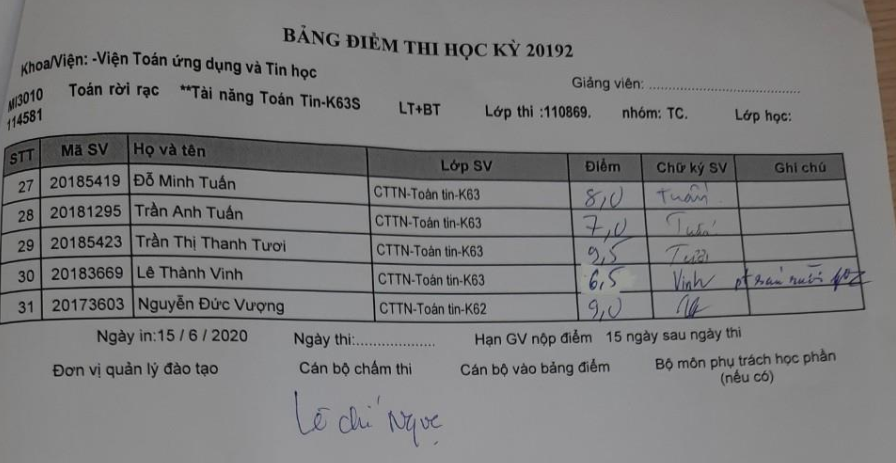 BẢNG ĐIỂM THI HỌC KỲ 20192
Khoa/Viện: -Viện Toán ứng dụng và Tin học
Giảng viên: ........................................
MI3010 Toán rời rạc **Tài năng Toán Tin-K63S LT+BT Lớp thi :110869. nhóm: TC. Lớp học:
114581
STT Mã SV Họ và tên Lớp SV Điểm Chữ ký SV Ghi chú
27 20185419 Đỗ Minh Tuấn CTTN-Toán tin-K63 8,0 Tuấn
28 20181295 Trần Anh Tuấn CTTN-Toán tin-K63 7,0 Tuấn
29 20185423 Trần Thị Thanh Tươi CTTN-Toán tin-K63 9,5 Tươi
30 20183669 Lê Thành Vinh CTTN-Toán tin-K63 6,5 Vinh
31 20173603 Nguyễn Đức Vượng CTTN-Toán tin-K62 9,0
Ngày in:15 / 6 / 2020 Ngày thi:.................... Hạn GV nộp điểm 15 ngày sau ngày thi
Đơn vị quản lý đào tạo Cán bộ chấm thi Cán bộ vào bảng điểm Bộ môn phụ trách học phần
(nếu có)
Lê Chí Ngọc